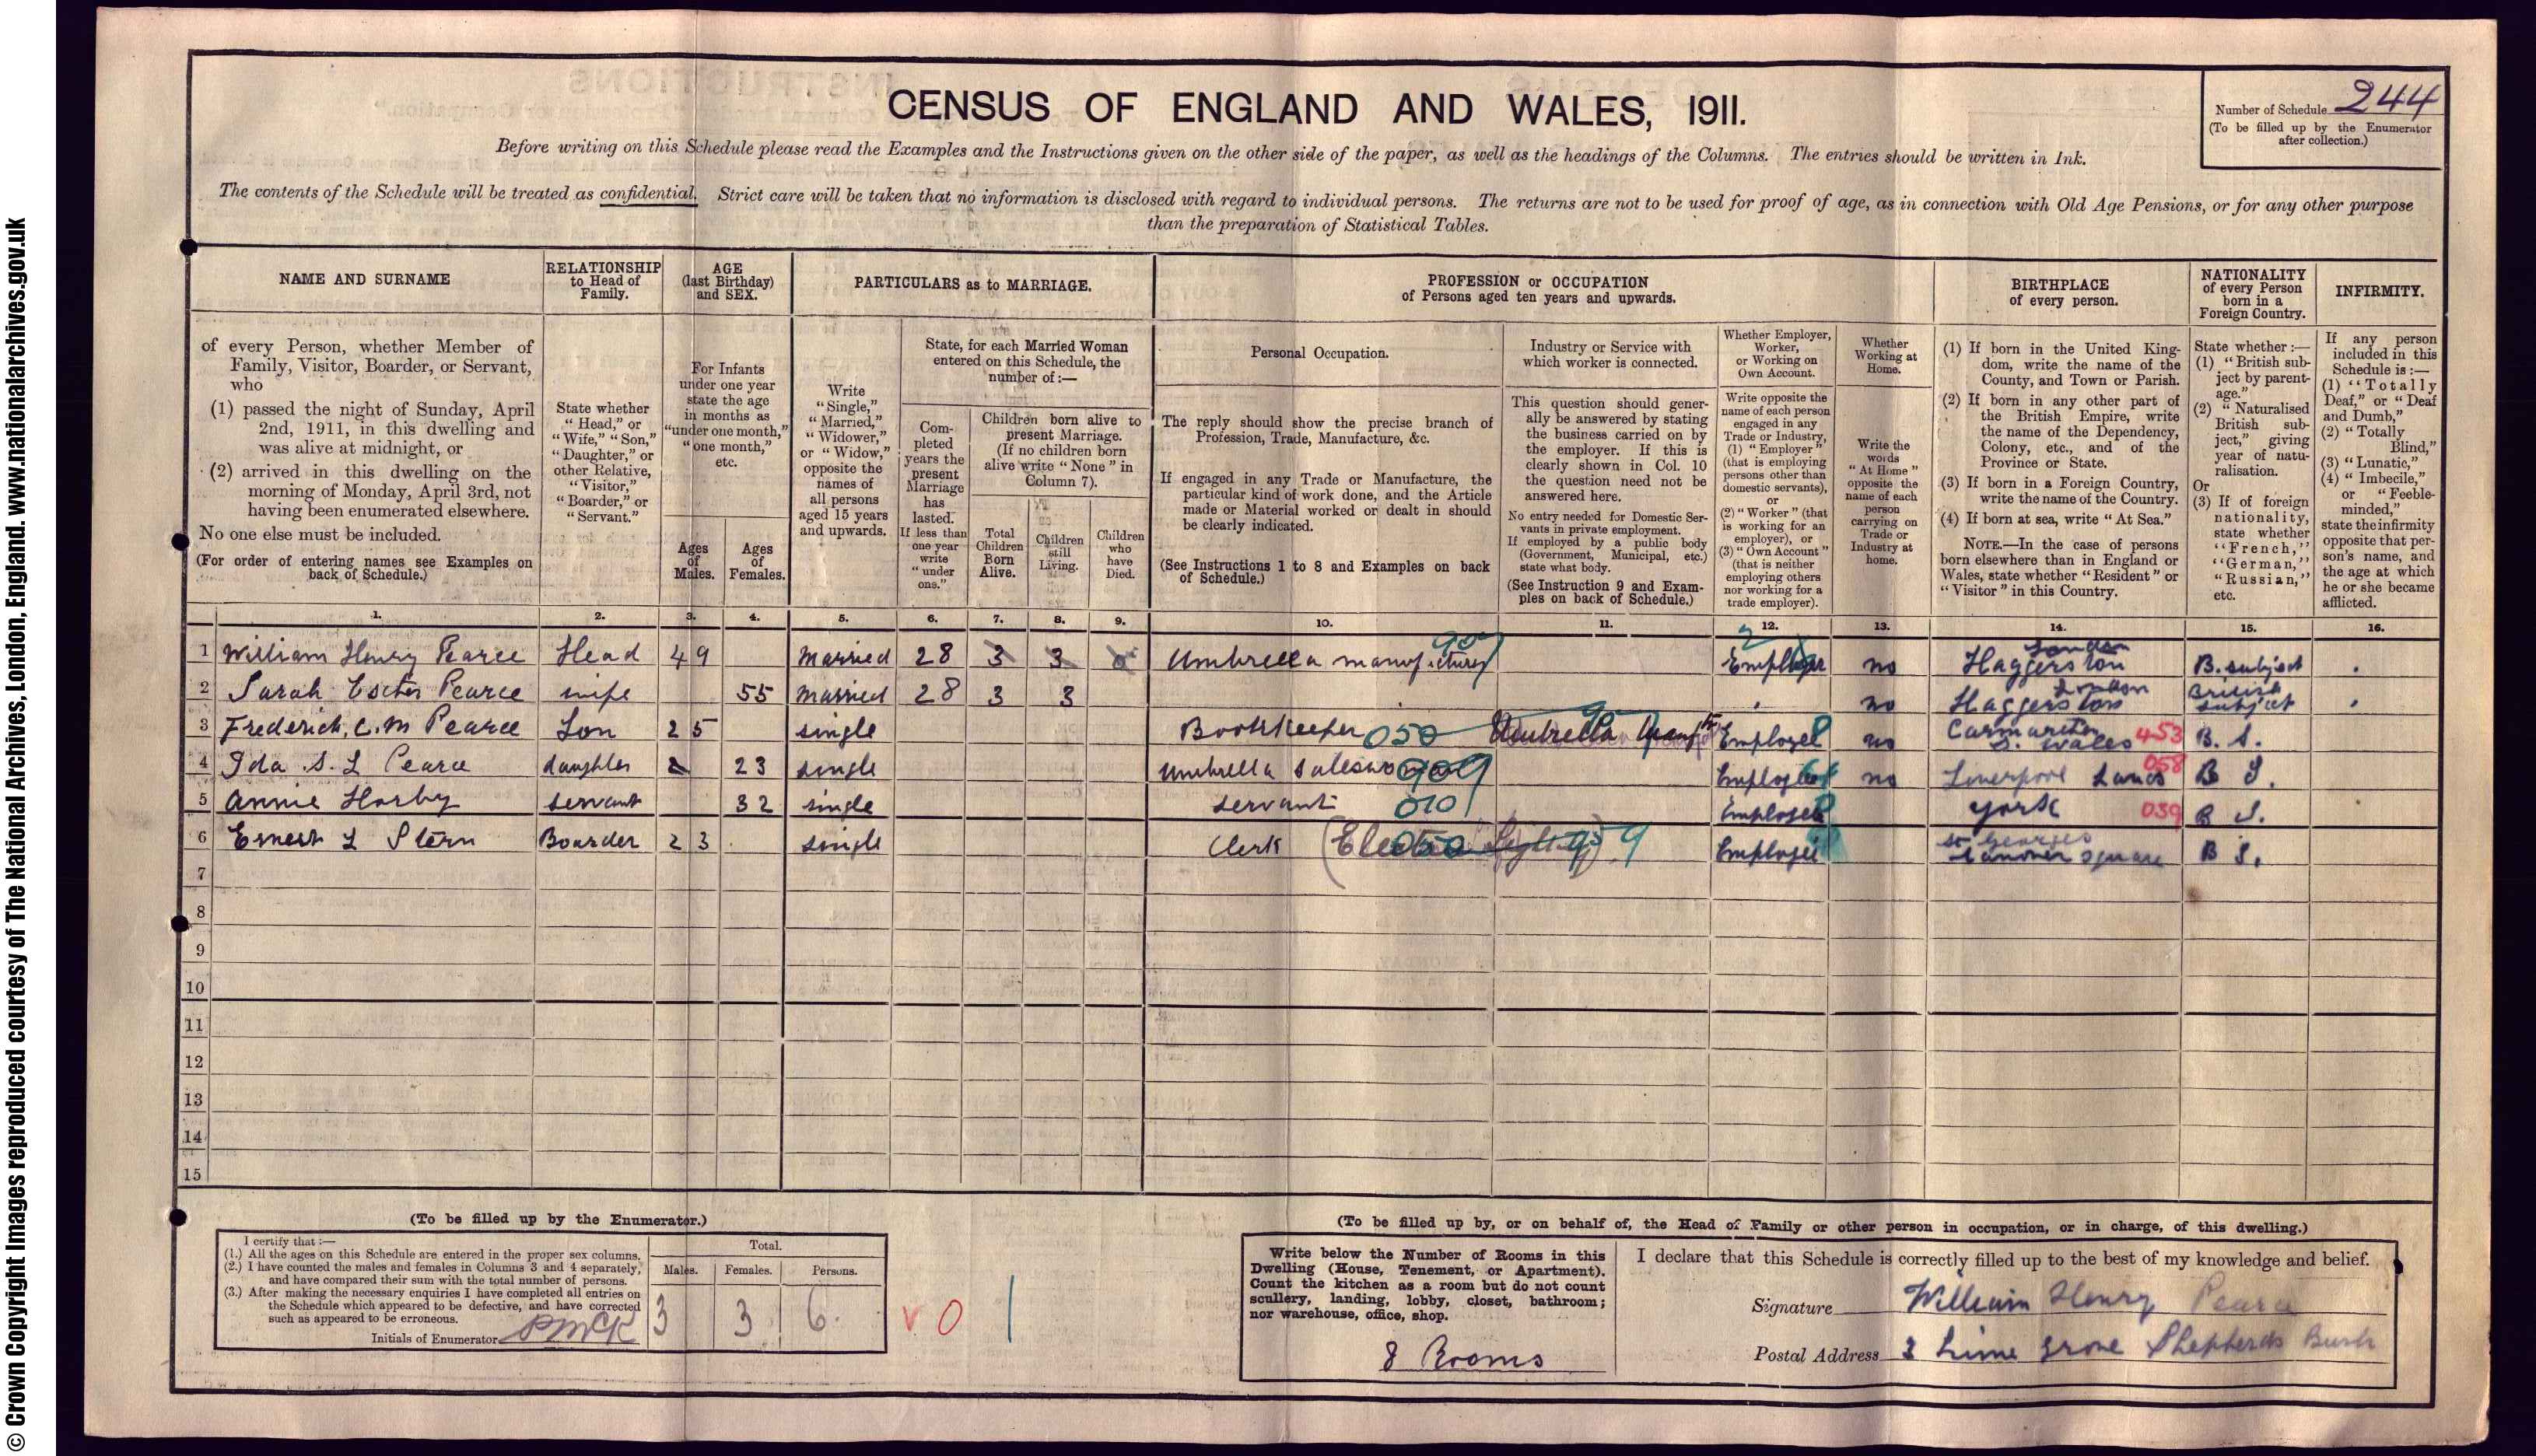 © Crown Copyright Images reproduced courtesy of The National Archives, London, England. www.nationalarchives.gov.uk
CENSUS OF ENGLAND AND WALES, 1911.
Number of Schedule 244
(To be filled up by the Enumerator after collection.)
Before writing on this Schedule please read the Examples and the Instructions given on the other side of the paper, as well as the headings of the Columns. The entries should be written in Ink.
The contents of the Schedule will be treated as confidential. Strict care will be taken that no information is disclosed with regard to individual persons. The returns are not to be used for proof of age, as in connection with Old Age Pensions, or for any other purpose
than the preparation of Statistical Tables.
NAME AND SURNAME
of every Person, whether Member of
Family, Visitor, Boarder, or Servant,
who
(1) passed the night of Sunday, April
2nd, 1911, in this dwelling and
was alive at midnight, or
(2) arrived in this dwelling on the
morning of Monday, April 3rd, not
having been enumerated elsewhere.
No one else must be included.
(For order of entering names see Examples on
back of Schedule.)
RELATIONSHIP
to Head of
Family.
State whether
"Head," or
"Wife," "Son,"
"Daughter," or
other Relative,
"Visitor,"
"Boarder," or
"Servant."
AGE
(last Birthday)
and SEX.
For Infants
under one year
state the age
in months as
"under one month,"
"one month,"
etc.
Ages
of
Males.
Ages
of
Females.
PARTICULARS as to MARRIAGE.
Write
"Single,"
"Married,"
"Widower,"
or "Widow,"
opposite the
names of
all persons
aged 15 years
and upwards.
State, for each Married Woman
entered on this Schedule, the
number of:—
Com-
pleted
years the
present
Marriage
has
lasted.
If less than
one year
write
"under
one."
Children born alive to
present Marriage.
(If no children born
alive write "None" in
Column 7).
Total
Children
Born
Alive.
Children
still
Living.
Children
who
have
Died.
PROFESSION or OCCUPATION
of Persons aged ten years and upwards.
Personal Occupation.
The reply should show the precise branch of
Profession, Trade, Manufacture, &c.
If engaged in any Trade or Manufacture, the
particular kind of work done, and the Article
made or Material worked or dealt in should
be clearly indicated.
(See Instructions 1 to 8 and Examples on back
of Schedule.)
Industry or Service with
which worker is connected.
This question should gener-
ally be answered by stating
the business carried on by
the employer. If this is
clearly shown in Col. 10
the question need not be
answered here.
No entry needed for Domestic Ser-
vants in private employment.
If employed by a public body
(Government, Municipal, etc.)
state what body.
(See Instruction 9 and Exam-
ples on back of Schedule.)
Whether Employer,
Worker,
or Working on
Own Account.
Write opposite the
name of each person
engaged in any
Trade or Industry,
(1) "Employer"
(that is employing
persons other than
domestic servants),
or
(2) "Worker" (that
is working for an
employer), or
(3) "Own Account"
(that is neither
employing others
nor working for a
trade employer).
Whether
Working at
Home.
Write the
words
"At Home"
opposite the
name of each
person
carrying on
Trade or
Industry at
home.
BIRTHPLACE
of every person.
(1) If born in the United King-
dom, write the name of the
County, and Town or Parish.
(2) If born in any other part of
the British Empire, write
the name of the Dependency,
Colony, etc., and of the
Province or State.
(3) If born in a Foreign Country,
write the name of the Country.
(4) If born at sea, write "At Sea."
NOTE.—In the case of persons
born elsewhere than in England or
Wales, state whether "Resident" or
"Visitor" in this Country.
NATIONALITY
of every Person
born in a
Foreign Country.
State whether:—
(1) "British sub-
ject by parent-
age."
(2) "Naturalised
British sub-
ject," giving
year of natu-
ralisation.
Or
(3) If of foreign
nationality,
state whether
"French,"
"German,"
"Russian,"
etc.
INFIRMITY.
If any person
included in this
Schedule is:—
(1) "Totally
Deaf," or "Deaf
and Dumb,"
(2) "Totally
Blind,"
(3) "Lunatic,"
(4) "Imbecile,"
or "Feeble-
minded,"
state the infirmity
opposite that per-
son's name, and
the age at which
he or she became
afflicted.
1. 2. 3. 4. 5. 6. 7. 8. 9. 10. 11. 12. 13. 14. 15. 16.
1 William Henry Pearce Head 49 Married 28 3 3 0 Umbrella manufacturer 907 Employer no London Haggerston B. subject
2 Sarah Esther Pearce wife 55 Married 28 3 3 no Haggerston London British subject
3 Frederick. C. M Pearce Son 25 single Bookkeeper 050 Umbrella Manufr Employee no Carmarthen S. Wales 453 B. S.
4 Ida S. L Pearce daughter 23 single Umbrella saleswoman 909 Employee no Liverpool Lancs 058 B S.
5 Annie Horby servant 32 single servant 010 Employee York 039 B S.
6 Ernest L Stern Boarder 23 single Clerk (Electric Lighting) 050 Employee St Georges Hanover square B S.
7
8
9
10
11
12
13
14
15
(To be filled up by the Enumerator.)
I certify that:—
(1.) All the ages on this Schedule are entered in the proper sex columns.
(2.) I have counted the males and females in Columns 3 and 4 separately,
and have compared their sum with the total number of persons.
(3.) After making the necessary enquiries I have completed all entries on
the Schedule which appeared to be defective, and have corrected
such as appeared to be erroneous.
Initials of Enumerator
Total.
Males. Females. Persons.
3 3 6
v 0 1
(To be filled up by, or on behalf of, the Head of Family or other person in occupation, or in charge, of this dwelling.)
Write below the Number of Rooms in this
Dwelling (House, Tenement, or Apartment).
Count the kitchen as a room but do not count
scullery, landing, lobby, closet, bathroom;
nor warehouse, office, shop.
8 Rooms
I declare that this Schedule is correctly filled up to the best of my knowledge and belief.
Signature William Henry Pearce
Postal Address 3 Lime Grove Shepherds Bush